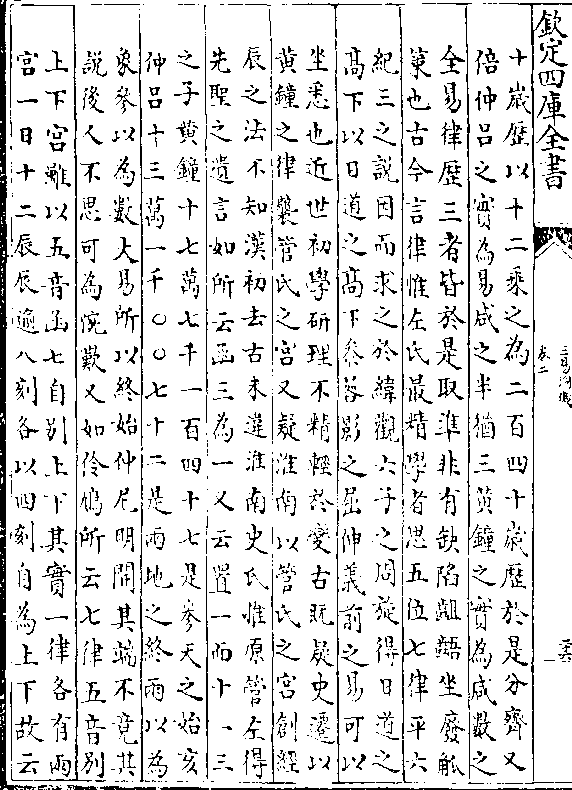 欽定四庫全書
三易洞璣
卷二
十歲歷以十二乘之為二百四十歲歷於是分齊又
倍仲呂之實為易咸之半猶三黃鐘之實為咸數之
全易律歷三者皆於是取準非有缺陷齟齬坐廢觚
䇿也古今言律惟左氏最精學者思五位七律平六
紀三之說因而求之於緯觀六子之周旋得日道之
高下以日道之高下叅晷影之屈伸義前之易可以
坐悉也近世初學研理不精輕於變古既疑史遷以
黃鐘之律襲管氏之宮又疑淮南以管氏之宮創經
辰之法不知漢初去古未遠淮南史氏惟原管左得
先聖之遺言如所云函三為一又云置一而十一三
之子黃鐘十七萬七千一百四十七是參天之始亥
仲呂十三萬一千〇〇七十二是兩地之終兩以為
象參以為數大易所以終始仲尼明開其端不竟其
說後人不思可為惋歎又如伶鳩所云七律五音別
上下宮雖以五音函七自別上下其實一律各有兩
宮一日十二辰辰逾八刻各以四刻自為上下故云